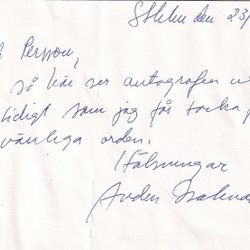 Sthlm den 23/
Persson,
så här ser autografen u
tidigt som jag får tacka f
vänliga orden.
Hälsningar